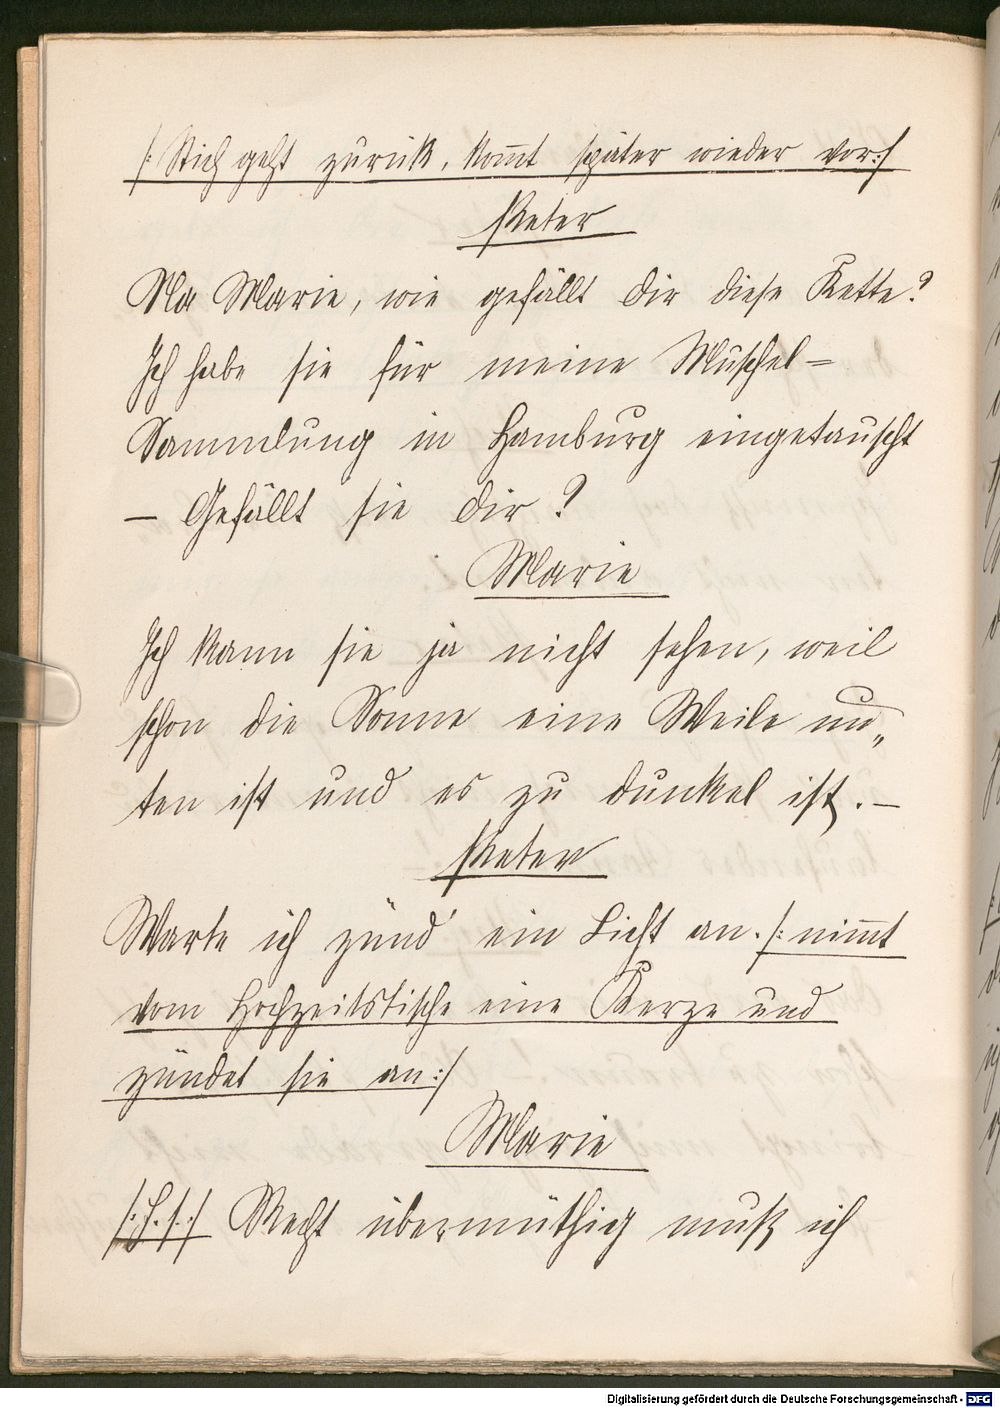 /: Stich geht zurück, kom̅t später wieder vor :/
Peter
Na Marie, wie gefällt dir diese Kette?
Ich habe sie für meine Muschel=
Sammlung in Hamburg eingetauscht
— Gefällt sie dir?
Marie
Ich kann sie ja nicht sehen, weil
schon die Sonne eine Weile un„
ten ist und es zu dunkel ist. —
Peter
Warte ich zünd' ein Licht an. /: nim̅t
vom Hochzeitstische eine Kerze und
zündet sie an :/
Marie
/: f. s. :/ Recht übermüthig muß ich
Digitalisierung gefördert durch die Deutsche Forschungsgemeinschaft - DFG